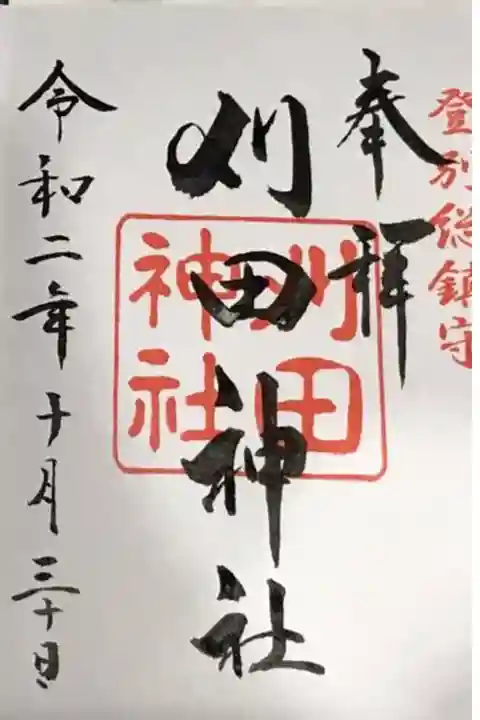 登別総鎮守
奉拝
刈田神社
刈田
神社
令和二年十月三十日